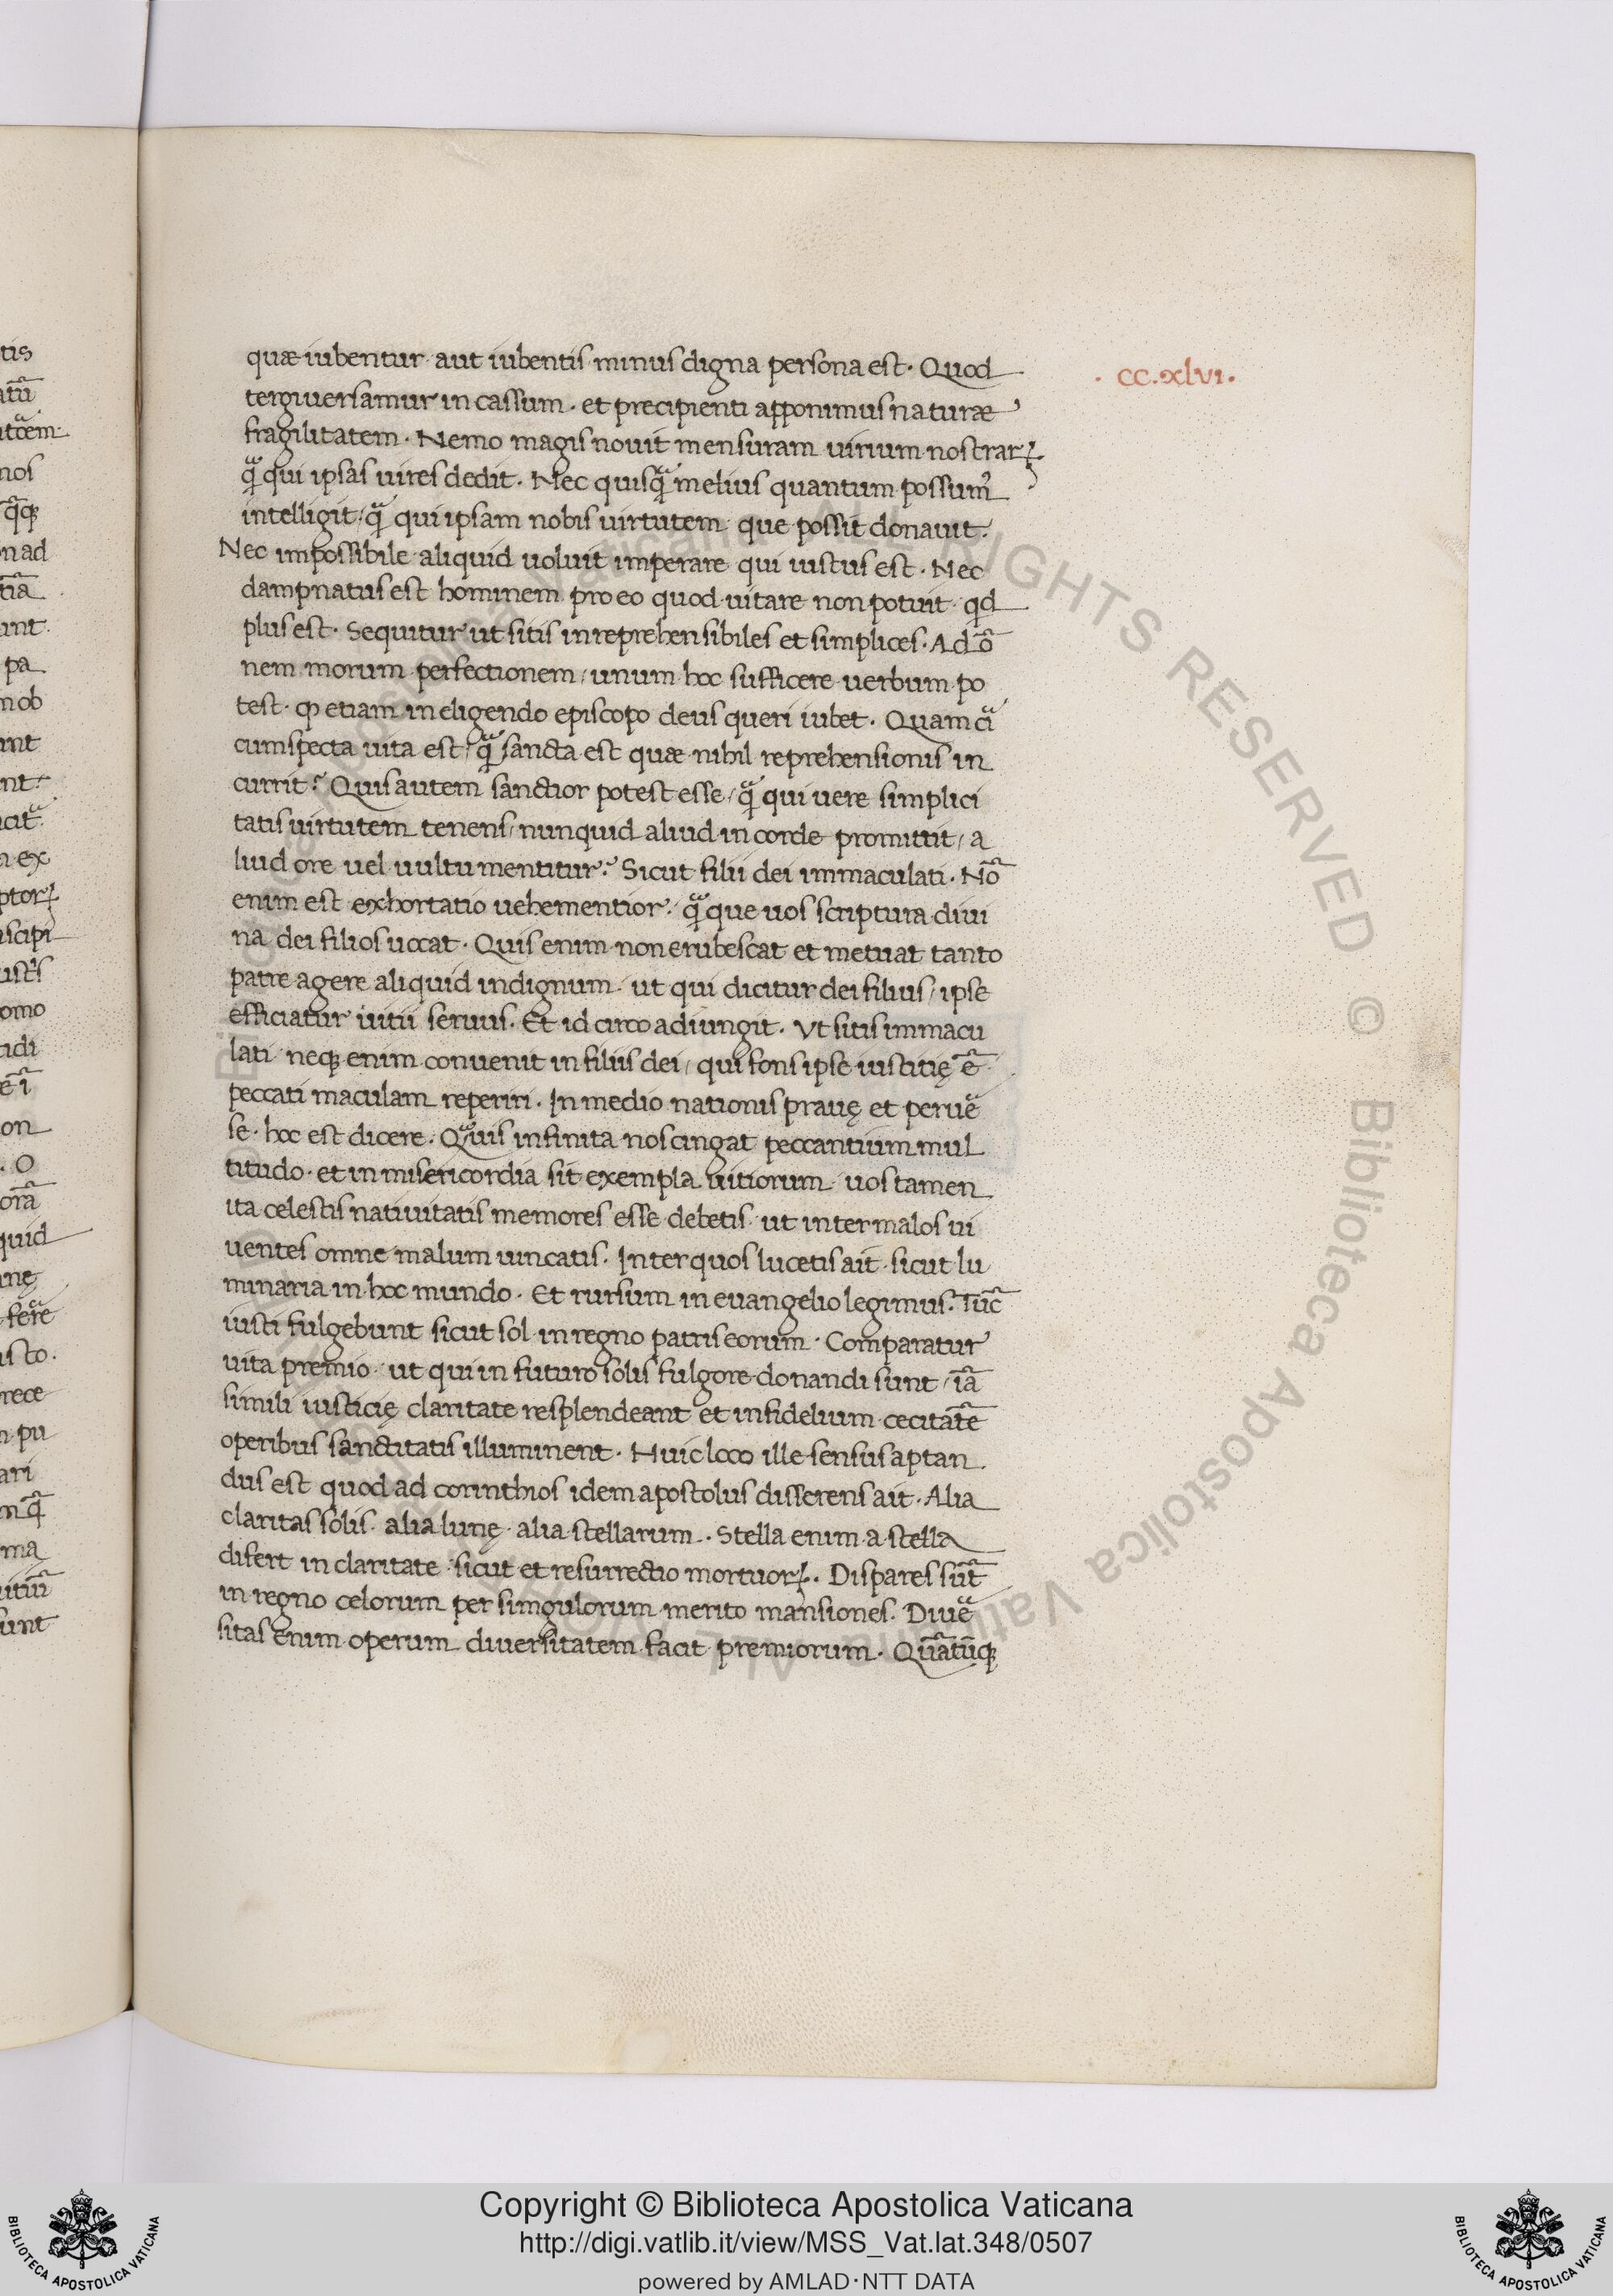 quæ iubentur· aut iubentis minus digna persona est· Quod
tergiuersamur in cassum· et precipienti apponimus naturæ
fragilitatem· Nemo magis nouit mensuram uirium nostraꝝ·
qᷓ qui ipsas uires dedit· Nec quisqᷓ melius quantum possum᾽
intelligit/ qᷓ qui ipsam nobis uirtutem que possit donauit·
Nec impossibile aliquid uoluit imperare qui iustus est· Nec
dampnatus est hominem pro eo quod uitare non potuit· qd
plus est· Sequitur ut sitis inreprehensibiles et simplices· Ad õ
nem morum perfectionem/ unum hoc sufficere uerbum po
test· ꝙ etiam in eligendo episcopo deus queri iubet· Quam ciᷓ
cumspecta uita est/ qᷓ sancta est quæ nihil reprehensionis in
currit? Quis autem sanctior potest esse/ qᷓ qui uere simplici
tatis uirtutem tenens/ nunquid aliud in corde promittit/ a
liud ore uel uultu mentitur? Sicut filii dei immaculati· Nõ
enim est exhortatio uehementior· qᷓ que uos scriptura diui
na dei filios uocat· Quis enim non erubescat et metuat tanto
patre agere aliquid indignum· ut qui dicitur dei filius/ ipse
efficiatur uitii seruus· Et id circo adiungit· Vt sitis immacu
lati neqꝫ enim conuenit in filiis dei/ qui fons ipse iustitię ẽ·
peccati maculam reperiri· In medio nationis prauę et perueᷓ
se· hoc est dicere· Qᷓuis infinita nos cingat peccantium mul
titudo· et in misericordia sit exempla uitiorum· uos tamen
ita celestis natiuitatis memores esse debetis· ut inter malos ui
uentes omne malum uincatis· Inter quos lucetis ait· sicut lu
minaria in hoc mundo· Et rursum in euangelio legimus· Tũc
iusti fulgebunt sicut sol in regno patris eorum· Comparatur
uita premio· ut qui in futuro solis fulgore donandi sunt/ iã
simili iusticię claritate resplendeant et infidelium cecitatẽ
operibus sanctitatis illuminent· Huic loco ille sensus aptan
dus est quod ad corinthios idem apostolus disserens ait· Alia
claritas solis· alia lunę· alia stellarum· Stella enim a stella
difert in claritate· sicut et resurrectio mortuoꝝ· Dispares sũt
in regno celorum per singulorum merito mansiones· Diueᷓ
sitas enim operum diuersitatem facit premiorum· Qũatũqꝫ
· cc·xlvi·
Copyright © Biblioteca Apostolica Vaticana
http://digi.vatlib.it/view/MSS_Vat.lat.348/0507
powered by AMLAD·NTT DATA